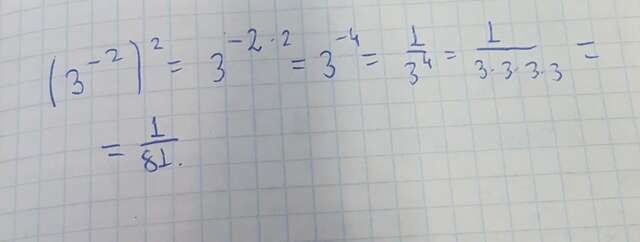 (3⁻²)² = 3⁻²·² = 3⁻⁴ = 1/3⁴ = 1/(3·3·3·3) =
= 1/81.